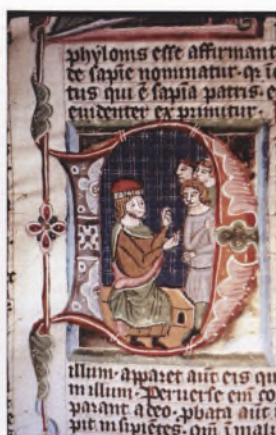 phylonis esse affirmant
de sapīe nominatur. qr ī
tus qui ē sapīa patris. e
euidenter exprimitur.
D
illum. apparet aūt eis qu
in illum. Peruerse em̄ co
parant a deo. pbata aūt
pit insipiētes. Qm̄ ī mal